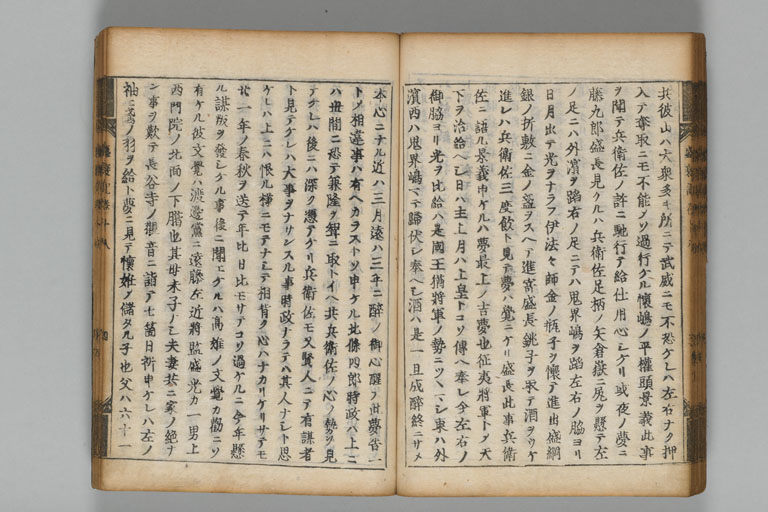 共彼山ハ大衆多キ所ニテ武威ニモ不恐ケレハ左右ナク押
入テ奪取ニモ不能ソ過行ケル懐嶋ノ平權頭景義此事
ヲ聞テ兵衛佐ノ許ニ馳行テ給仕用心シケリ或夜ノ夢ニ
藤九郎盛長見ケルハ兵衛佐足柄ノ矢倉嶽ニ尻ヲ懸テ左
ノ足ニハ外濱ヲ蹈右ノ足ニテハ鬼界嶋ヲ蹈左右ノ脇ヨリ
日月出テ光ヲナラフ伊法々師金ノ瓶子ヲ懐テ進出盛綱
銀ノ折敷ニ金ノ盃ヲスヘテ進寄盛長銚子ヲ取テ酒ヲウケ
進レハ兵衛佐三度飲ト見テ夢ハ覺ニケリ盛長此事兵衛
佐ニ語ル景義申ケルハ夢最上ノ吉夢也征夷將軍トシテ天
下ヲ治給ヘシ日ハ主上月ハ上皇トコソ傳ヘ奉レ今左右ノ
御脇ヨリ光ヲ比給ハ是國王猶將軍ノ勢ニツヽマレ東ハ外
濱西ハ鬼界嶋マテ歸伏シ奉ヘシ酒ハ是一旦成醉終ニサメ
本心ニナル近ハ三月遠ハ三年ニ醉ノ御心醒テ此夢告一
トシテ相違事ハ有ヘカラストソ申ケル北條四郎時政ハ上ニ
ハ世間ニ恐テ兼隆ヲ聟ニ取トイヘ共兵衛佐ノ心ノ勢ヲ見
テケレハ後ニハ深ク憑テケリ兵衛佐モ又賢人ニテ有謀者
ト見テケレハ大事ヲナサンスル事時政ナラテハ其人ナシト思
ケレハ上ニハ恨ル樣ニモテナシテ相背ク心ハナカリケリサテモ
廿一年ノ春秋ヲ送テ年比日比モサテコソ過ケルニ今年懸
ル謀叛ヲ發シケル事後ニ聞エケルハ高雄ノ文覺カ勸ニソ
有ケル彼文覺ハ渡邊黨ニ遠藤左近將監盛光カ一男上
西門院ノ北面ノ下臈也其母未子ノ夫妻共ニ家ノ絶ナ
ン事ヲ歎テ長谷寺ノ觀音ニ詣テ七箇日祈申ケレハ左ノ
袖ニ鳶ノ羽ヲ給ト夢ニ見テ懐姙シテ儲タル子也父ハ六十一